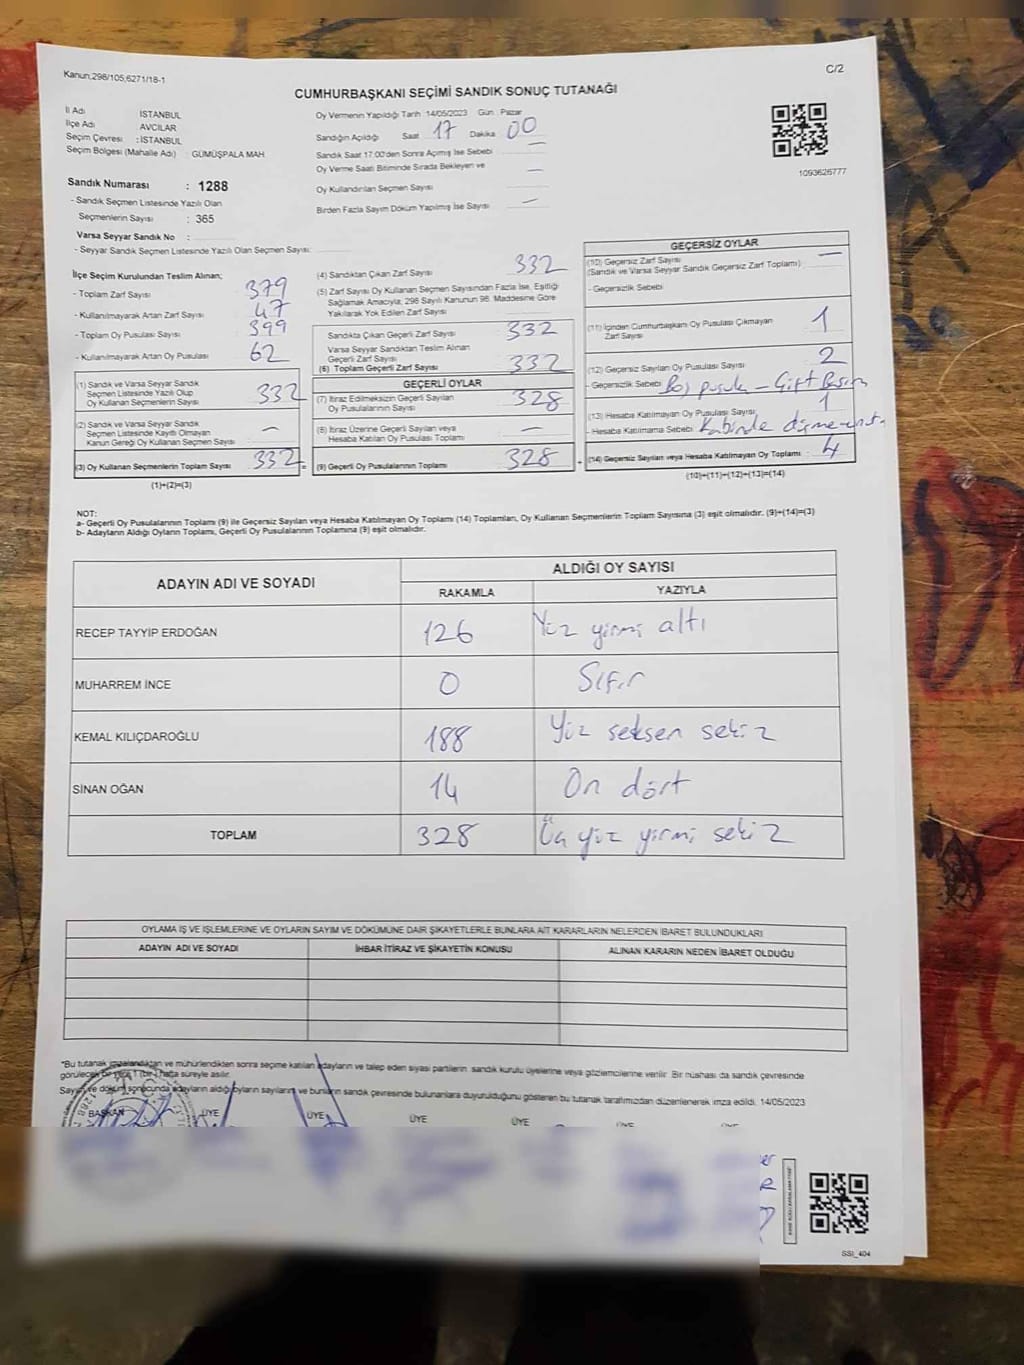 Kanun:298/105,6271/18-1
C/2
CUMHURBAŞKANI SEÇİMİ SANDIK SONUÇ TUTANAĞI
İl Adı İSTANBUL
İlçe Adı AVCILAR
Seçim Çevresi : İSTANBUL
Seçim Bölgesi (Mahalle Adı) : GÜMÜŞPALA MAH
Sandık Numarası : 1288
- Sandık Seçmen Listesinde Yazılı Olan
Seçmenlerin Sayısı : 365
Varsa Seyyar Sandık No :
- Seyyar Sandık Seçmen Listesinde Yazılı Olan Seçmen Sayısı:
Oy Vermenin Yapıldığı Tarih 14/05/2023 Gün : Pazar
Sandığın Açıldığı Saat 17 Dakika 00
Sandık Saat 17:00'den Sonra Açmış İse Sebebi —
Oy Verme Saati Bitiminde Sırada Bekleyen ve
Oy Kullandırılan Seçmen Sayısı —
Birden Fazla Sayım Döküm Yapılmış İse Sayısı —
1093626777
İlçe Seçim Kurulundan Teslim Alınan;
- Toplam Zarf Sayısı 379
- Kullanılmayarak Artan Zarf Sayısı 47
- Toplam Oy Pusulası Sayısı 399
- Kullanılmayarak Artan Oy Pusulası 62
(1) Sandık ve Varsa Seyyar Sandık
Seçmen Listesinde Yazılı Olup
Oy Kullanan Seçmenlerin Sayısı 332
(2) Sandık ve Varsa Seyyar Sandık
Seçmen Listesinde Kayıtlı Olmayan
Kanun Gereği Oy Kullanan Seçmen Sayısı —
(3) Oy Kullanan Seçmenlerin Toplam Sayısı 332 =
(1)+(2)=(3)
(4) Sandıktan Çıkan Zarf Sayısı 332
(5) Zarf Sayısı Oy Kullanan Seçmen Sayısından Fazla İse, Eşitliği
Sağlamak Amacıyla; 298 Sayılı Kanunun 98. Maddesine Göre
Yakılarak Yok Edilen Zarf Sayısı
Sandıkta Çıkan Geçerli Zarf Sayısı 332
Varsa Seyyar Sandıktan Teslim Alınan
Geçerli Zarf Sayısı
(6) Toplam Geçerli Zarf Sayısı 332
GEÇERLİ OYLAR
(7) İtiraz Edilmeksizin Geçerli Sayılan
Oy Pusulalarının Sayısı 328
(8) İtiraz Üzerine Geçerli Sayılan veya
Hesaba Katılan Oy Pusulası Toplamı —
(9) Geçerli Oy Pusulalarının Toplamı 328 +
GEÇERSİZ OYLAR
(10) Geçersiz Zarf Sayısı —
(Sandık ve Varsa Seyyar Sandık Geçersiz Zarf Toplamı)
- Geçersizlik Sebebi
(11) İçinden Cumhurbaşkanı Oy Pusulası Çıkmayan
Zarf Sayısı 1
(12) Geçersiz Sayılan Oy Pusulası Sayısı 2
- Geçersizlik Sebebi Boş pusula - Çift Basım
(13) Hesaba Katılmayan Oy Pusulası Sayısı 1
- Hesaba Katılmama Sebebi Kabinde
(14) Geçersiz Sayılan veya Hesaba Katılmayan Oy Toplamı : 4
(10)+(11)+(12)+(13)=(14)
NOT:
a- Geçerli Oy Pusulalarının Toplamı (9) ile Geçersiz Sayılan veya Hesaba Katılmayan Oy Toplamı (14) Toplamları, Oy Kullanan Seçmenlerin Toplam Sayısına (3) eşit olmalıdır. (9)+(14)=(3)
b- Adayların Aldığı Oyların Toplamı, Geçerli Oy Pusulalarının Toplamına (9) eşit olmalıdır.
ADAYIN ADI VE SOYADI
ALDIĞI OY SAYISI
RAKAMLA YAZIYLA
RECEP TAYYİP ERDOĞAN 126 Yüz yirmi altı
MUHARREM İNCE 0 Sıfır
KEMAL KILIÇDAROĞLU 188 Yüz seksen sekiz
SİNAN OĞAN 14 On dört
TOPLAM 328 Üç yüz yirmi sekiz
OYLAMA İŞ VE İŞLEMLERİNE VE OYLARIN SAYIM VE DÖKÜMÜNE DAİR ŞİKAYETLERLE BUNLARA AİT KARARLARIN NELERDEN İBARET BULUNDUKLARI
ADAYIN ADI VE SOYADI İHBAR İTİRAZ VE ŞİKAYETİN KONUSU ALINAN KARARIN NEDEN İBARET OLDUĞU
*Bu tutanak imzalandıktan ve mühürlendikten sonra seçime katılan adayların ve talep eden siyasi partilerin sandık kurulu üyelerine veya gözlemcilerine verilir. Bir nüshası da sandık çevresinde
görülecek bir yere 1 (bir) hafta süreyle asılır.
Sayım ve döküm sonucunda adayların aldığı oyların sayılarını ve bunların sandık çevresinde bulunanlara duyurulduğunu gösteren bu tutanak tarafımızdan düzenlenerek imza edildi. 14/05/2023
BAŞKAN ÜYE ÜYE ÜYE ÜYE
SSI_404